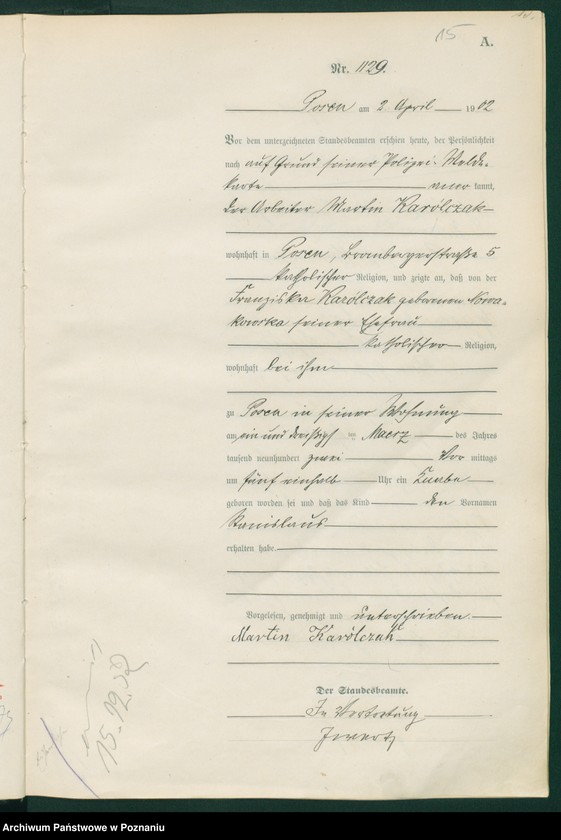 15
A.
Nr. 1129.
Posen am 2 April 1902
Vor dem unterzeichneten Standesbeamten erschien heute, der Persönlichkeit
nach auf Grund seiner Polizei-Melde-
karte kannt,
der Arbeiter Martin Karólczak
wohnhaft in Posen, Brombergerstraße 5
katholischer Religion, und zeigte an, daß von der
Franziska Karólczak geborenen Nowa-
kowska seiner Ehefrau
katholischer Religion,
wohnhaft bei ihm
zu Posen in seiner Wohnung
am ein und dreißigsten Maerz des Jahres
tausend neunhundert zwei Vor mittags
um fünf einhalb Uhr ein Knabe
geboren worden sei und daß das Kind den Vornamen
Stanislaus
erhalten habe.
Vorgelesen, genehmigt und unterschrieben
Martin Karólczak
Der Standesbeamte.
In Vertretung
15.12.02
Archiwum Państwowe w Poznaniu